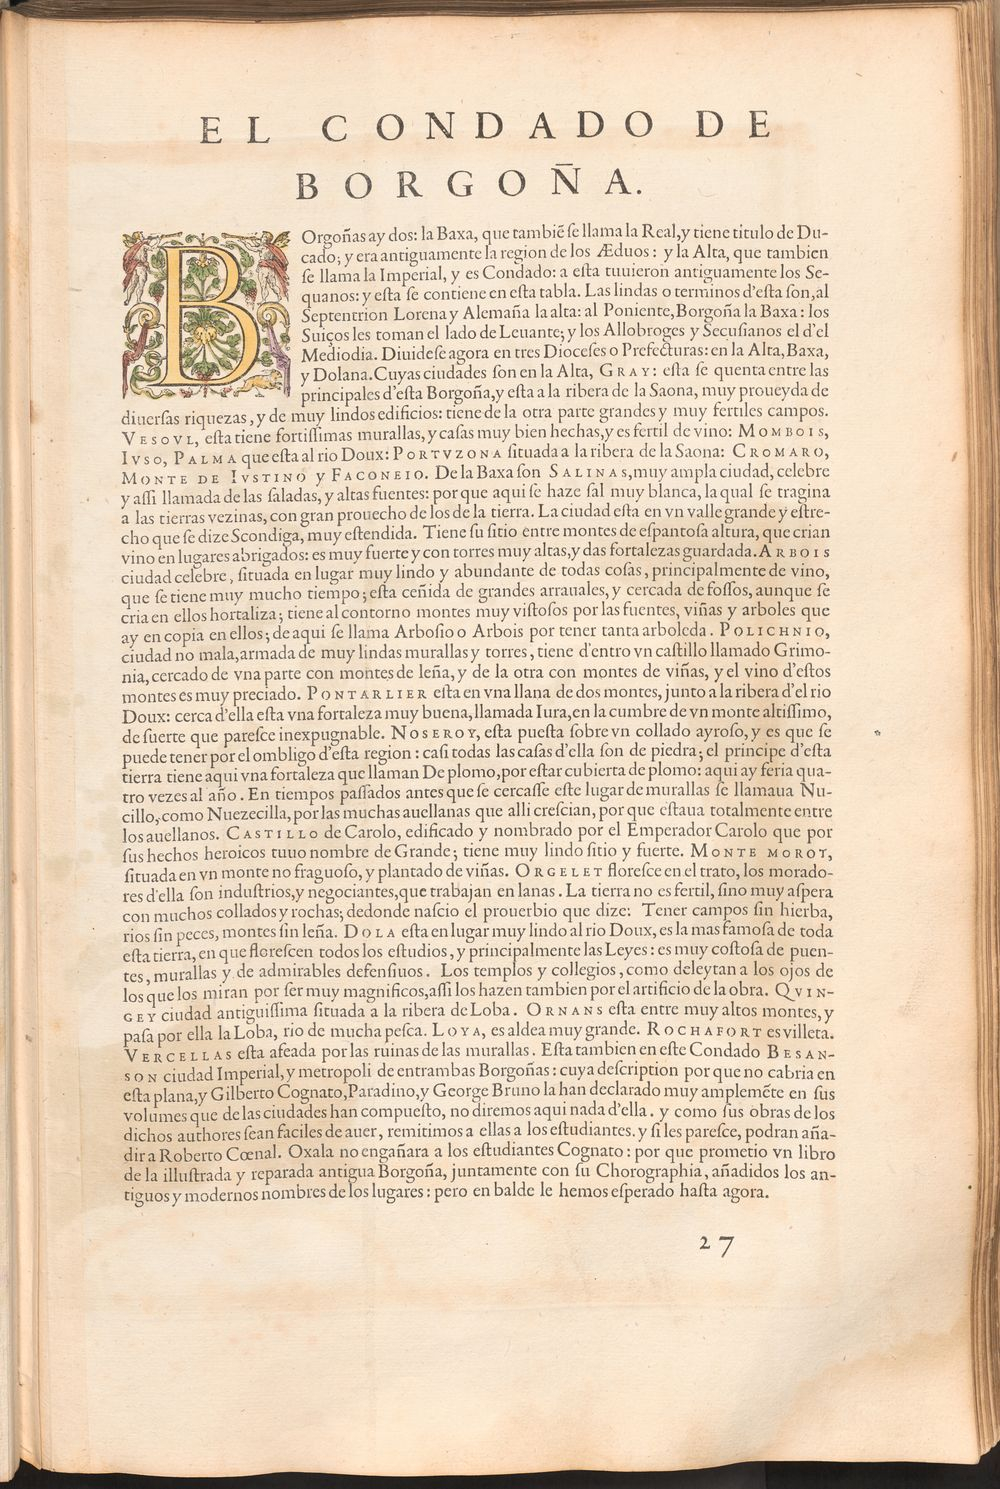 EL CONDADO DE
BORGOÑA.
BOrgoñas ay dos: la Baxa, que tambiẽ ſe llama la Real, y tiene titulo de Du-
cado; y era antiguamente la region de los Æduos: y la Alta, que tambien
ſe llama la Imperial, y es Condado: a eſta tuuieron antiguamente los Se-
quanos: y eſta ſe contiene en eſta tabla. Las lindas o terminos d'eſta ſon, al
Septentrion Lorena y Alemaña la alta: al Poniente, Borgoña la Baxa: los
Suiços les toman el lado de Leuante; y los Allobroges y Secuſianos el d'el
Mediodia. Diuideſe agora en tres Dioceſes o Prefecturas: en la Alta, Baxa,
y Dolana. Cuyas ciudades ſon en la Alta, GRAY: eſta ſe quenta entre las
principales d'eſta Borgoña, y eſta a la ribera de la Saona, muy proueyda de
diuerſas riquezas, y de muy lindos edificios: tiene de la otra parte grandes y muy fertiles campos.
VESOVL, eſta tiene fortiſſimas murallas, y caſas muy bien hechas, y es fertil de vino: MOMBOIS,
IVSO, PALMA que eſta al rio Doux: PORTVZONA ſituada a la ribera de la Saona: CROMARO,
MONTE DE IVSTINO y FACONEIO. De la Baxa ſon SALINAS, muy ampla ciudad, celebre
y aſſi llamada de las ſaladas, y altas fuentes: por que aqui ſe haze ſal muy blanca, la qual ſe tragina
a las tierras vezinas, con gran prouecho de los de la tierra. La ciudad eſta en vn valle grande y eſtre-
cho que ſe dize Scondiga, muy eſtendida. Tiene ſu ſitio entre montes de eſpantoſa altura, que crian
vino en lugares abrigados: es muy fuerte y con torres muy altas, y das fortalezas guardada. ARBOIS
ciudad celebre, ſituada en lugar muy lindo y abundante de todas coſas, principalmente de vino,
que ſe tiene muy mucho tiempo; eſta ceñida de grandes arrauales, y cercada de foſſos, aunque ſe
cria en ellos hortaliza; tiene al contorno montes muy viſtoſos por las fuentes, viñas y arboles que
ay en copia en ellos; de aqui ſe llama Arboſio o Arbois por tener tanta arboleda. POLICHNIO,
ciudad no mala, armada de muy lindas murallas y torres, tiene d'entro vn caſtillo llamado Grimo-
nia, cercado de vna parte con montes de leña, y de la otra con montes de viñas, y el vino d'eſtos
montes es muy preciado. PONTARLIER eſta en vna llana de dos montes, junto a la ribera d'el rio
Doux: cerca d'ella eſta vna fortaleza muy buena, llamada Iura, en la cumbre de vn monte altiſſimo,
de ſuerte que pareſce inexpugnable. NOSEROY, eſta pueſta ſobre vn collado ayroſo, y es que ſe
puede tener por el ombligo d'eſta region: caſi todas las caſas d'ella ſon de piedra; el principe d'eſta
tierra tiene aqui vna fortaleza que llaman De plomo, por eſtar cubierta de plomo: aqui ay feria qua-
tro vezes al año. En tiempos paſſados antes que ſe cercaſſe eſte lugar de murallas ſe llamaua Nu-
cillo, como Nuezecilla, por las muchas auellanas que alli creſcian, por que eſtaua totalmente entre
los auellanos. CASTILLO de Carolo, edificado y nombrado por el Emperador Carolo que por
ſus hechos heroicos tuuo nombre de Grande; tiene muy lindo ſitio y fuerte. MONTE MOROT,
ſituada en vn monte no fraguoſo, y plantado de viñas. ORGELET floreſce en el trato, los morado-
res d'ella ſon induſtrios, y negociantes, que trabajan en lanas. La tierra no es fertil, ſino muy aſpera
con muchos collados y rochas; dedonde naſcio el prouerbio que dize: Tener campos ſin hierba,
rios ſin peces, montes ſin leña. DOLA eſta en lugar muy lindo al rio Doux, es la mas famoſa de toda
eſta tierra, en que floreſcen todos los eſtudios, y principalmente las Leyes: es muy coſtoſa de puen-
tes, murallas y de admirables defenſiuos. Los templos y collegios, como deleytan a los ojos de
los que los miran por ſer muy magnificos, aſſi los hazen tambien por el artificio de la obra. QVIN-
GEY ciudad antiguiſſima ſituada a la ribera de Loba. ORNANS eſta entre muy altos montes, y
paſa por ella la Loba, rio de mucha peſca. LOYA, es aldea muy grande. ROCHAFORT es villeta.
VERCELLAS eſta afeada por las ruinas de las murallas. Eſta tambien en eſte Condado BESAN-
SON ciudad Imperial, y metropoli de entrambas Borgoñas: cuya deſcription por que no cabria en
eſta plana, y Gilberto Cognato, Paradino, y George Bruno la han declarado muy amplemẽte en ſus
volumes que de las ciudades han compueſto, no diremos aqui nada d'ella. y como ſus obras de los
dichos authores ſean faciles de auer, remitimos a ellas a los eſtudiantes. y ſi les pareſce, podran aña-
dir a Roberto Cœnal. Oxala no engañara a los eſtudiantes Cognato: por que prometio vn libro
de la illuſtrada y reparada antigua Borgoña, juntamente con ſu Chorographia, añadidos los an-
tiguos y modernos nombres de los lugares: pero en balde le hemos eſperado haſta agora.
27